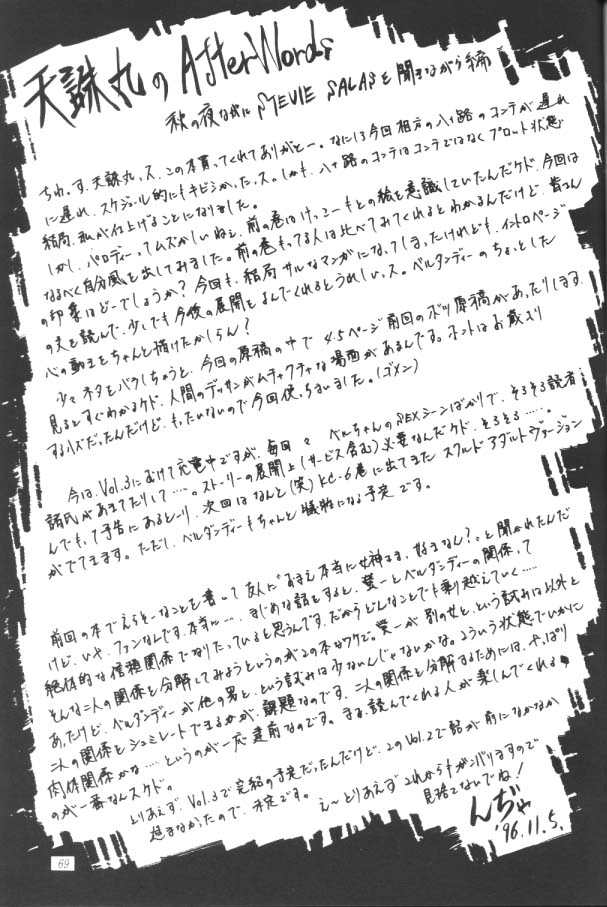 天誅丸の After Words
秋の夜ながに STEVIE SALASを聞きながら編
ちわ。す、天誅丸ッス、この本買ってくれてありがとー。なにに今回相方の八十路のコンテが遅れ
に遅れ、スケジュール的にもキビシかったッス。しかも、八十路のコンテはコンテではなくプロット状態
結局、私が仕上げることになりました。
しかし、パロディーってムズかしいねぇ、前の巻はけっこーもとの絵を意識していたんだケド、今回は
なるべく自分風を出してみました。前の巻もってる人は比べてみてくれるとわかるんだけど、皆さん
の印象はどーでしょうか?今回も、結局サルなマンガになってしまったけれども、イントロページ
の文を読んで、少しでも今後の展開をよんでくれるとうれしいッス。ベルダンディーのちょっとした
心の動きをちゃんと描けたかしらん?
少々ネタをバラしちゃうと、今回の原稿の中で 4.5ページ前回のボツ原稿があったりします。
見るとすぐわかるケド、人間のデッサンがムチャクチャな場面があるんです。ホントはお蔵入り
するハズだったんだけど、もったいないので今回使っちまいました。(ゴメン)
今は、Vol.3にむけて充電中ですが、毎回々 ベルちゃんのSEXシーンばかりで、そろそろ読者
諸氏があきてたりして…。ストーリーの展開上(サービス含む)必要なんだケド、そろそろ……。
んでもって予告にあるとーり、次回はなんと(笑)KC-6巻に出てきた スクルドアダルトヴァージョン
がでてきます。ただし、ベルダンディーもちゃんと犠牲になる予定です。
前回の本でえらそーなことを書いて友人に"おまえ本当に女神さま、好きなん?"と聞かれたんだ
けど、いや、ファンなんです本当に…。まじめな話をすると、螢一とベルダンディーの関係って
絶体的な信頼関係でなりたっていると思うんです。だからどんなことでも乗り越えていく……
そんな二人の関係を分解してみようというのがこの本なワケで。螢一が別の女と、という試みは以外と
あったけど、ベルダンディーが他の男と、という試みは少ないんじゃないかな。こういう状態でいかに
二人の関係をシュミレートできるかが、課題なのです。二人の関係を分解するためには、やっぱり
肉体関係かな……というのが一応、建前なのです。まあ、読んでくれる人が楽しんでくれる
のが一番なんスケド。
とりあえず、Vol.3で完結の予定だったんだけど、このVol.2で話が前になかなか
進まなかったので、未定です。
え〜とりあえず これからもガンバリますので
見捨てないでね!
んぢゃ
'96.11.5.
69